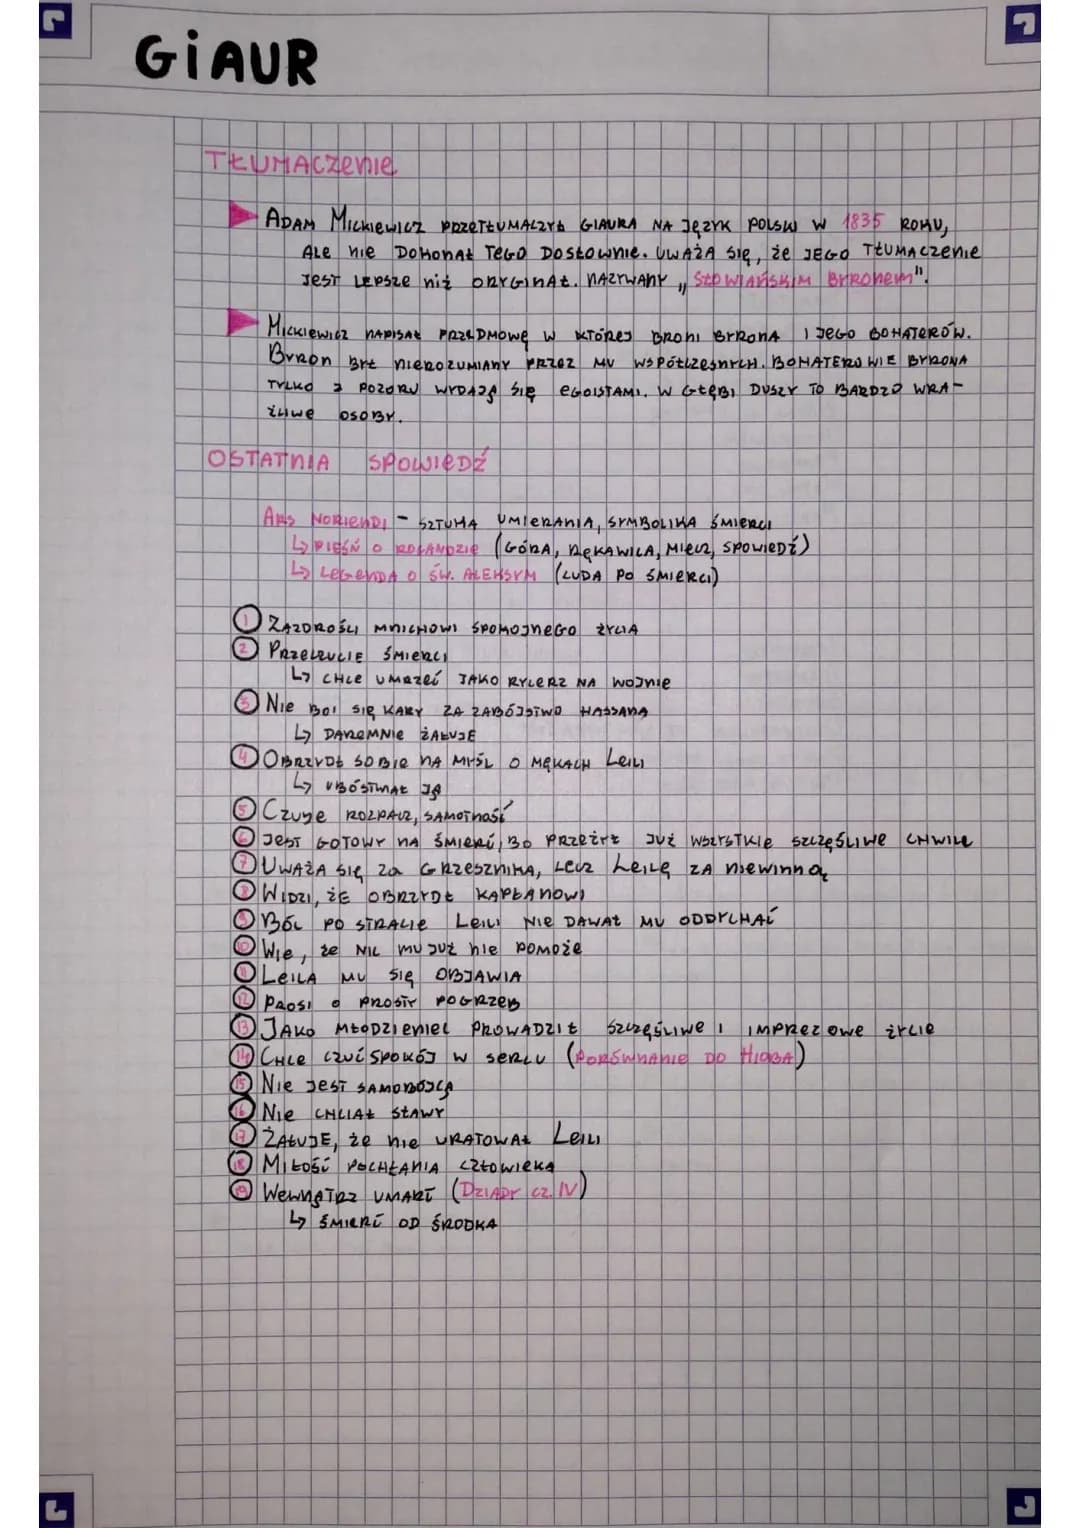 GIAUR
TŁUMACZENIE
ADAM MICKIEWICZ PRZETŁUMACZYŁ GIAURA NA JĘZYK POLSKI W 1835 ROKU,
ALE NIE DOKONAŁ TEGO DOSŁOWNIE. UWAŻA SIĘ, ŻE JEGO TŁUMACZENIE
JEST LEPSZE NIŻ ORYGINAŁ. NAZYWANY „SŁOWIAŃSKIM BYRONEM".
MICKIEWICZ NAPISAŁ PRZEDMOWĘ W KTÓREJ BRONI BYRONA I JEGO BOHATERÓW.
BYRON BYŁ NIEROZUMIANY PRZEZ MU WSPÓŁCZESNYCH. BOHATEROWIE BYRONA
TYLKO Z POZORU WYDAJĄ SIĘ EGOISTAMI. W GŁĘBI DUSZY TO BARDZO WRA-
ŻLIWE OSOBY.
OSTATNIA SPOWIEDŹ
ARS MORIENDI - SZTUKA UMIERANIA, SYMBOLIKA ŚMIERCI
↳ PIEŚŃ O ROLANDZIE (GÓRA, RĘKAWICA, MIECZ, SPOWIEDŹ)
↳ LEGENDA O ŚW. ALEKSYM (CUDA PO ŚMIERCI)
1 ZAZDROŚCI MNICHOWI SPOKOJNEGO ŻYCIA
2 PRZECZUCIE ŚMIERCI
↳ CHCE UMRZEĆ JAKO RYCERZ NA WOJNIE
3 NIE BOI SIĘ KARY ZA ZABÓJSTWO HASSANA
↳ DAREMNIE ŻAŁUJE
4 OBRZYDŁ SOBIE NA MYŚL O MĘKACH LEILI
↳ UBÓSTWIAŁ JĄ
5 CZUJE ROZPACZ, SAMOTNOŚĆ
6 JEST GOTOWY NA ŚMIERĆ, BO PRZEŻYŁ JUŻ WSZYSTKIE SZCZĘŚLIWE CHWILE
7 UWAŻA SIĘ ZA GRZESZNIKA, LECZ LEILĘ ZA NIEWINNĄ
8 WIDZI, ŻE OBRZYDŁ KAPŁANOWI
9 BÓL PO STRACIE LEILI NIE DAWAŁ MU ODDYCHAĆ
10 WIE, ŻE NIC MU JUŻ NIE POMOŻE
11 LEILA MU SIĘ OBJAWIA
12 PROSI O PROSTY POGRZEB
13 JAKO MŁODZIENIEC PROWADZIŁ SZCZĘŚLIWE I IMPREZOWE ŻYCIE
14 CHCE CZUĆ SPOKÓJ W SERCU (PORÓWNANIE DO HIOBA)
15 NIE JEST SAMOBÓJCĄ
16 NIE CHCIAŁ SŁAWY
17 ŻAŁUJE, ŻE NIE URATOWAŁ LEILI
18 MIŁOŚĆ POCHŁANIA CZŁOWIEKA
19 WEWNĄTRZ UMARŁ (DZIADY CZ. IV)
↳ ŚMIERĆ OD ŚRODKA